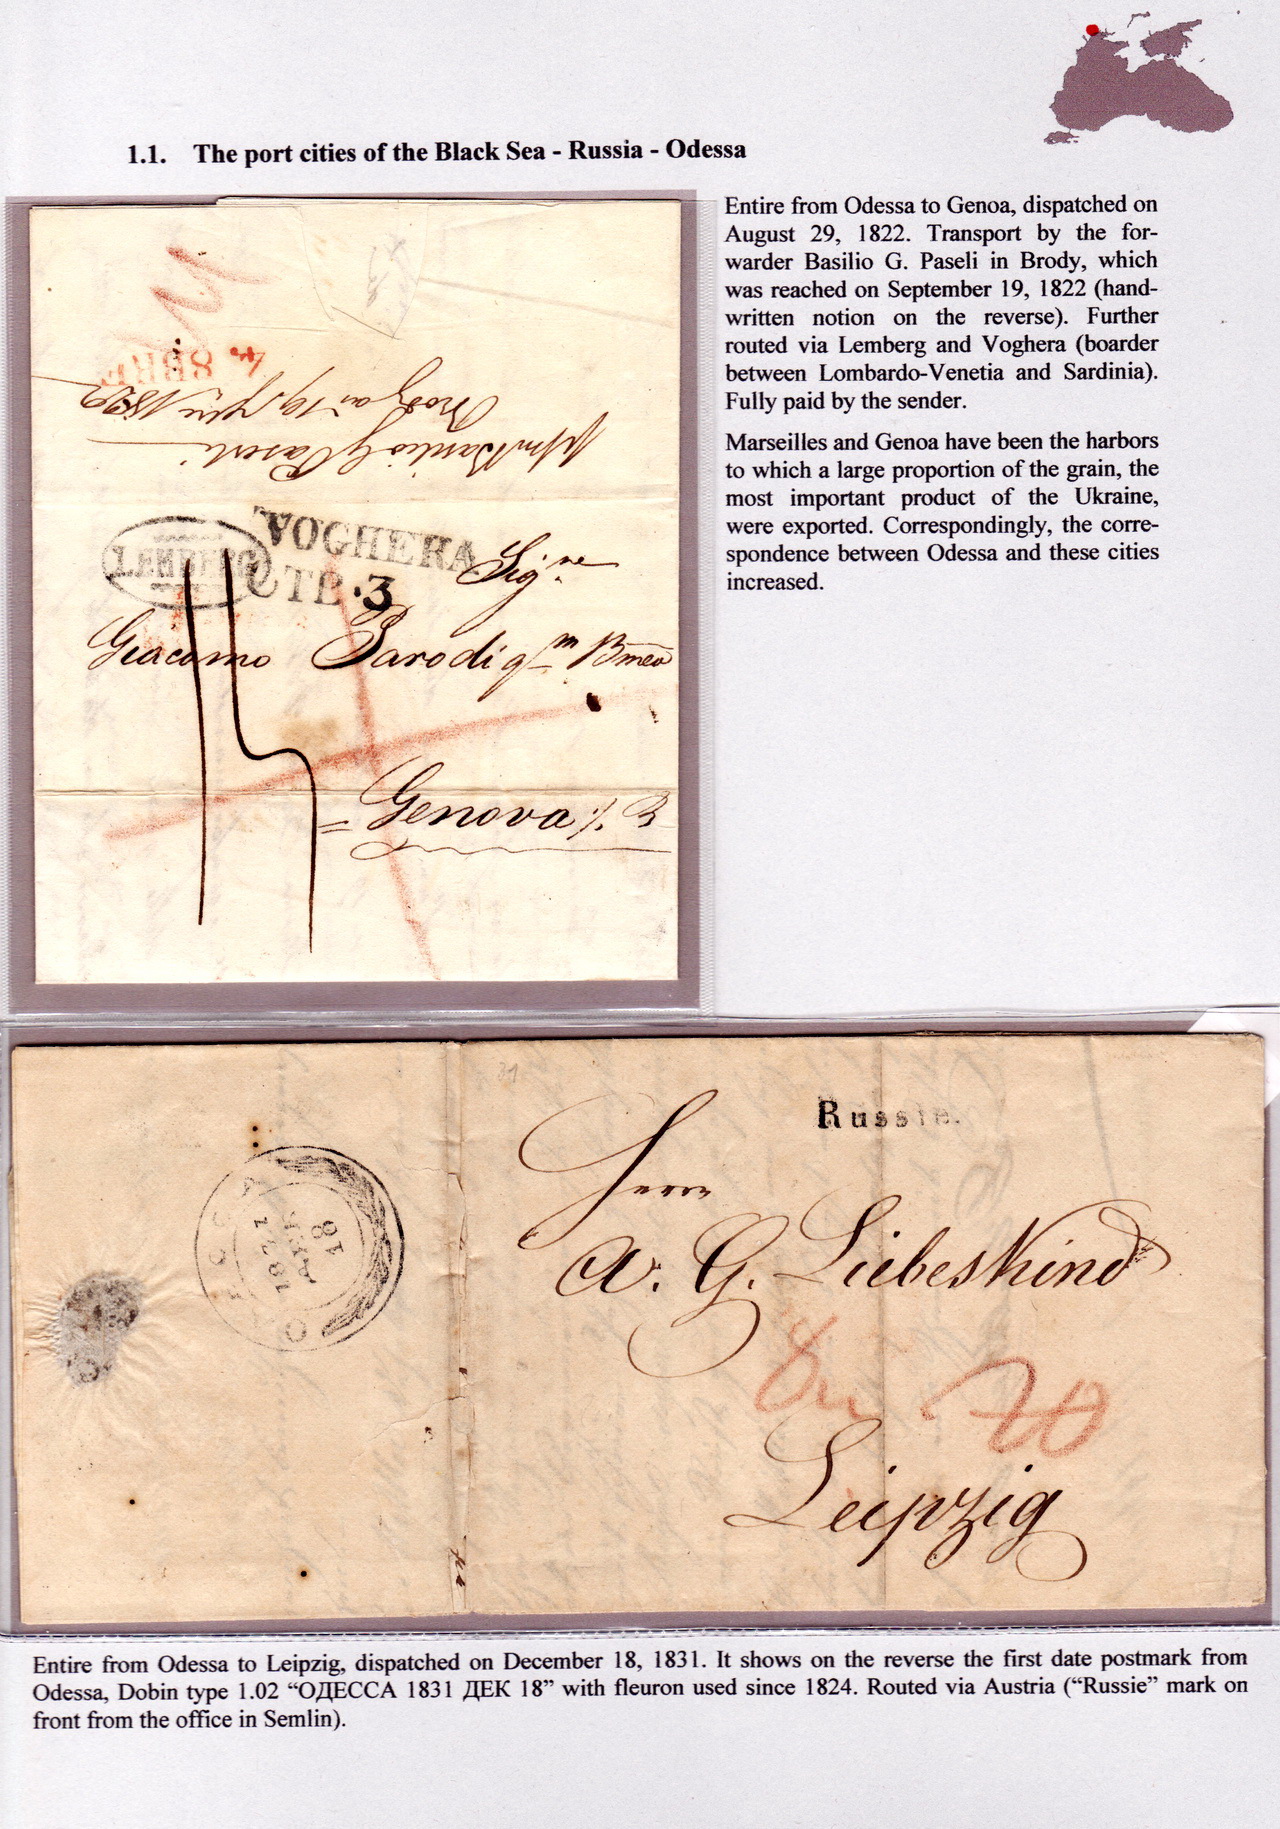 1.1. The port cities of the Black Sea - Russia - Odessa
Entire from Odessa to Genoa, dispatched on
August 29, 1822. Transport by the for-
warder Basilio G. Paseli in Brody, which
was reached on September 19, 1822 (hand-
written notion on the reverse). Further
routed via Lemberg and Voghera (boarder
between Lombardo-Venetia and Sardinia).
Fully paid by the sender.
Marseilles and Genoa have been the harbors
to which a large proportion of the grain, the
most important product of the Ukraine,
were exported. Correspondingly, the corre-
spondence between Odessa and these cities
increased.
4. 8BRE
1822
VOGHERA
LEMBERG
·3
Sig.re
Giacomo Parodi qm
Genova
Russie.
Herrn
A. G. Liebeskind
Leipzig
1831
18
Entire from Odessa to Leipzig, dispatched on December 18, 1831. It shows on the reverse the first date postmark from
Odessa, Dobin type 1.02 “ОДЕССА 1831 ДЕК 18” with fleuron used since 1824. Routed via Austria (“Russie” mark on
front from the office in Semlin).